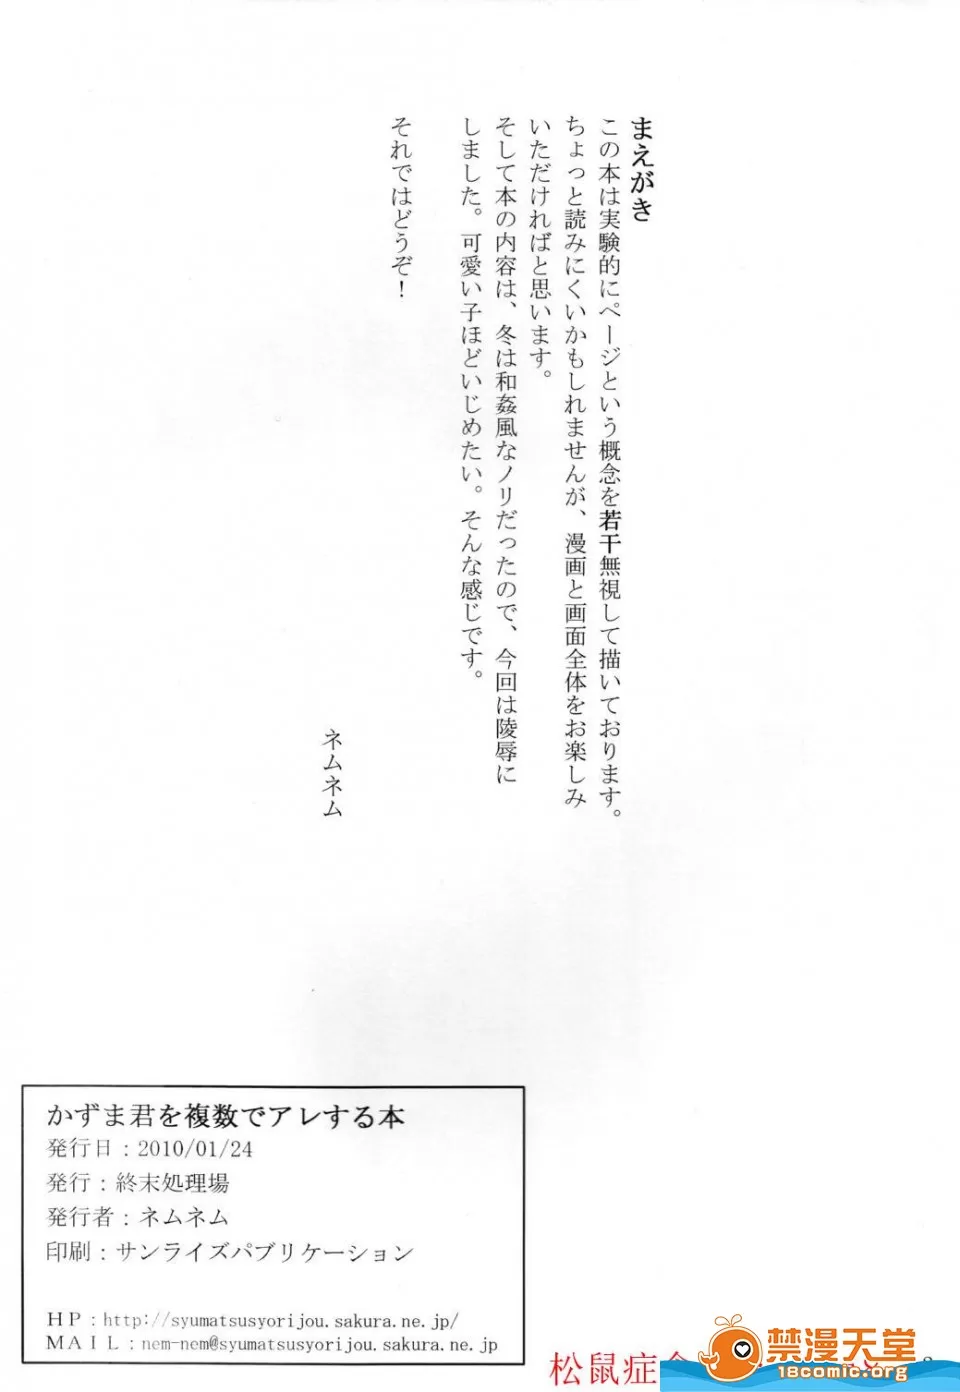 まえがき
この本は実験的にページという概念を若干無視して描いております。
ちょっと読みにくいかもしれませんが、漫画と画面全体をお楽しみ
いただければと思います。
そして本の内容は、冬は和姦風なノリだったので、今回は陵辱に
しました。可愛い子ほどいじめたい。そんな感じです。
それではどうぞ！
ネムネム
かずま君を複数でアレする本
発行日：2010/01/24
発行：終末処理場
発行者：ネムネム
印刷：サンライズパブリケーション
ＨＰ：http://syumatsusyorijou.sakura.ne.jp/
ＭＡＩＬ：nem-nem@syumatsusyorijou.sakura.ne.jp
松鼠症
禁漫天堂
18comic.org